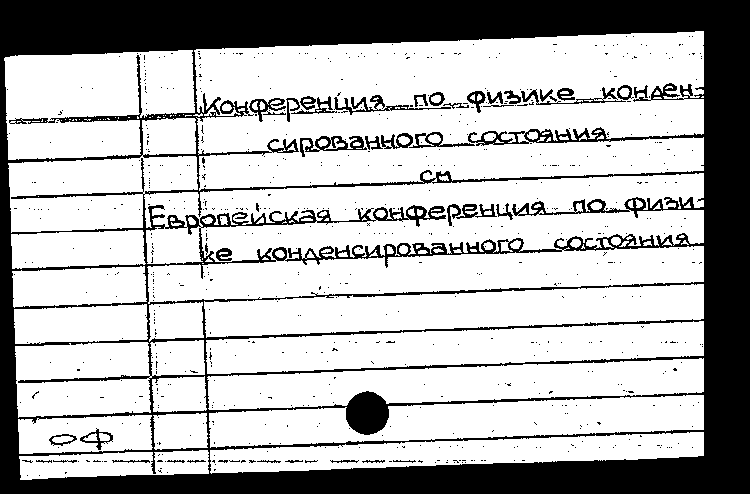 Конференция по физике конден-
сированного состояния
см
Европейская конференция по физи-
ке конденсированного состояния
ОФ